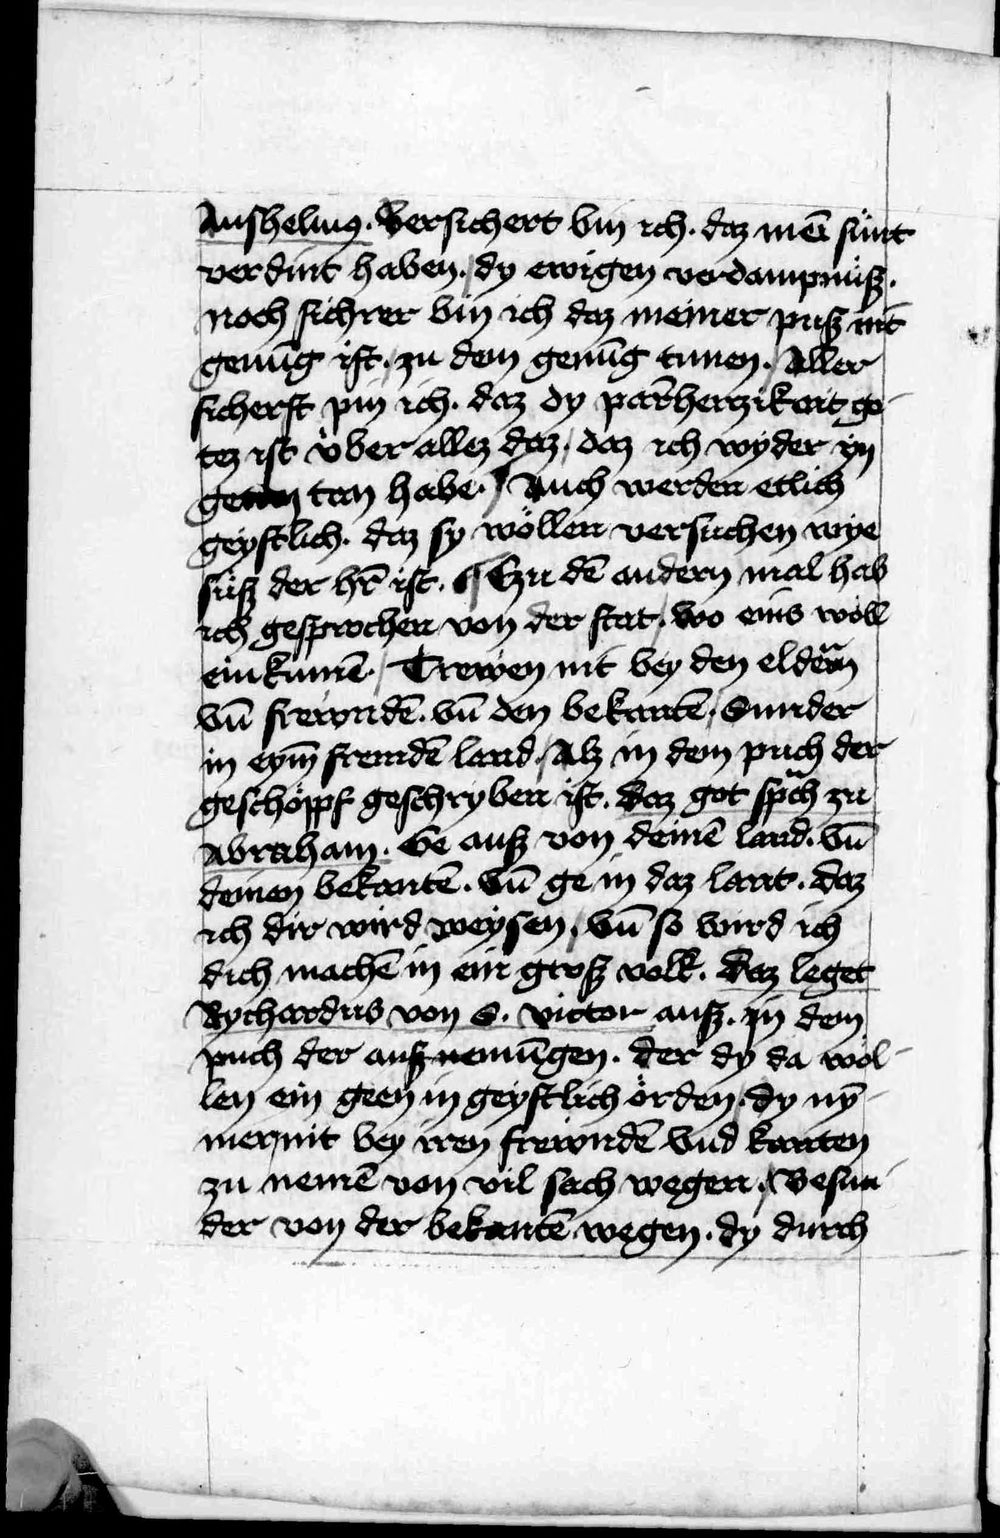 Anshelmꝰ. Versichert bin ich. daz mēī sünt
verdint haben. dy ewigen verdampnüß.
noch sichrer bin ich daz meiner puß nit
genūg ist. zu dem genūg tunen. Aller
sicherst pin ich. daz dy parherczikait go-
tez ist über allez daz. daz ich wyder yn
getan habe. Auch werden etlich
geystlich. daz sy wöllen versuchen wye
süß der hr̄ ist. ¶ Czu dē andern mal hab
ich gesprochen von der stat. wo eins wöll
einkumē. Trewen nit bey den eldern
vn̄ frewndē. vn̄ den bekantē. Sunder
in eym̄ fremdē land. Alz in dem puch der
geschöpf geschryben ist. Daz got sprach zu
Abraham. Ge auß von deinē land. vn̄
deinen bekantē. vn̄ ge in daz lant. daz
ich dir wird weysen. vn̄ so wird ich
dich machē in ein groß volk. Daz leget
Rychardus von S. victor auß. in dem
puch der auß nemūngen. der dy da wöl-
len ein geen in geystlich örden. dy nȳ-
mer nit bey iren frewndē vnd kanten
zu nemē von vil sach wegen. Besun-
der von der bekantē wegen. dy durch